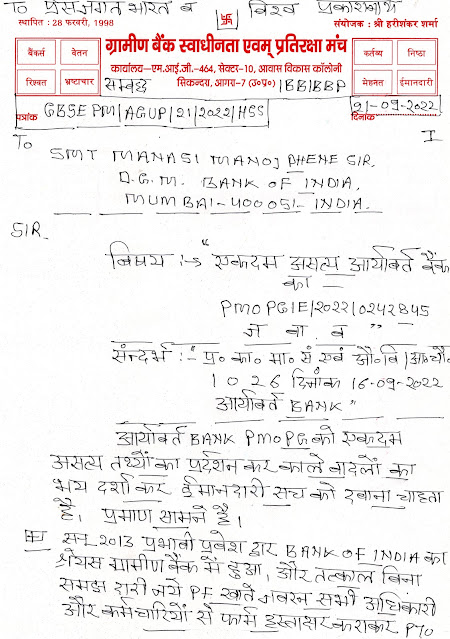 To प्रेस जगत भारत व विश्व प्रकाशनार्थ
स्थापित : 28 फरवरी, 1998
संयोजक : श्री हरीशंकर शर्मा
बैंकर्स वेतन
रिश्वत भ्रष्टाचार
ग्रामीण बैंक स्वाधीनता एवम् प्रतिरक्षा मंच
कार्यालय–एम.आई.जी.-464, सेक्टर-10, आवास विकास कॉलोनी
सिकन्दरा, आगरा-7 (उ०प्र०)
कर्तव्य निष्ठा
मेहनत ईमानदारी
सम्बद्ध IBBIBBP
पत्रांक GBSEPM/AGUP/21/2022/HSS
दिनांक 21-09-2022
I
To
SMT MANASI MANOJ DHENE SIR.
D.G.M. BANK OF INDIA,
MUMBAI-400051- INDIA.
SIR
विषय :-> "एकदम असत्य आर्यावर्त बैंक
का —
PMOPGIE/2022/0242845
ज वा. व " –
संन्दर्भ :- "प्र० का० मा० सं एवं औ० वि/आ० चौ०
1026 दिनांक 16-09-2022
आर्यावर्त BANK"
आर्यावर्त BANK PMOPG को एकदम
असत्य तथ्यों का प्रर्दशन कर काले वादलों का
भय दर्शा कर ईमानदारी सच को दबाना चाहता
है। प्रमाण सामने है।
सन 2013 प्रभावी प्रवेश द्वार BANK OF INDIA का
श्रेयस ग्रामीण बैंक में हुआ, और तत्काल बिना
समझदारी नये PF खाते जबरन सभी अधिकारी
और कर्मचारियों से फार्म हस्ताक्षर कराकर PTO